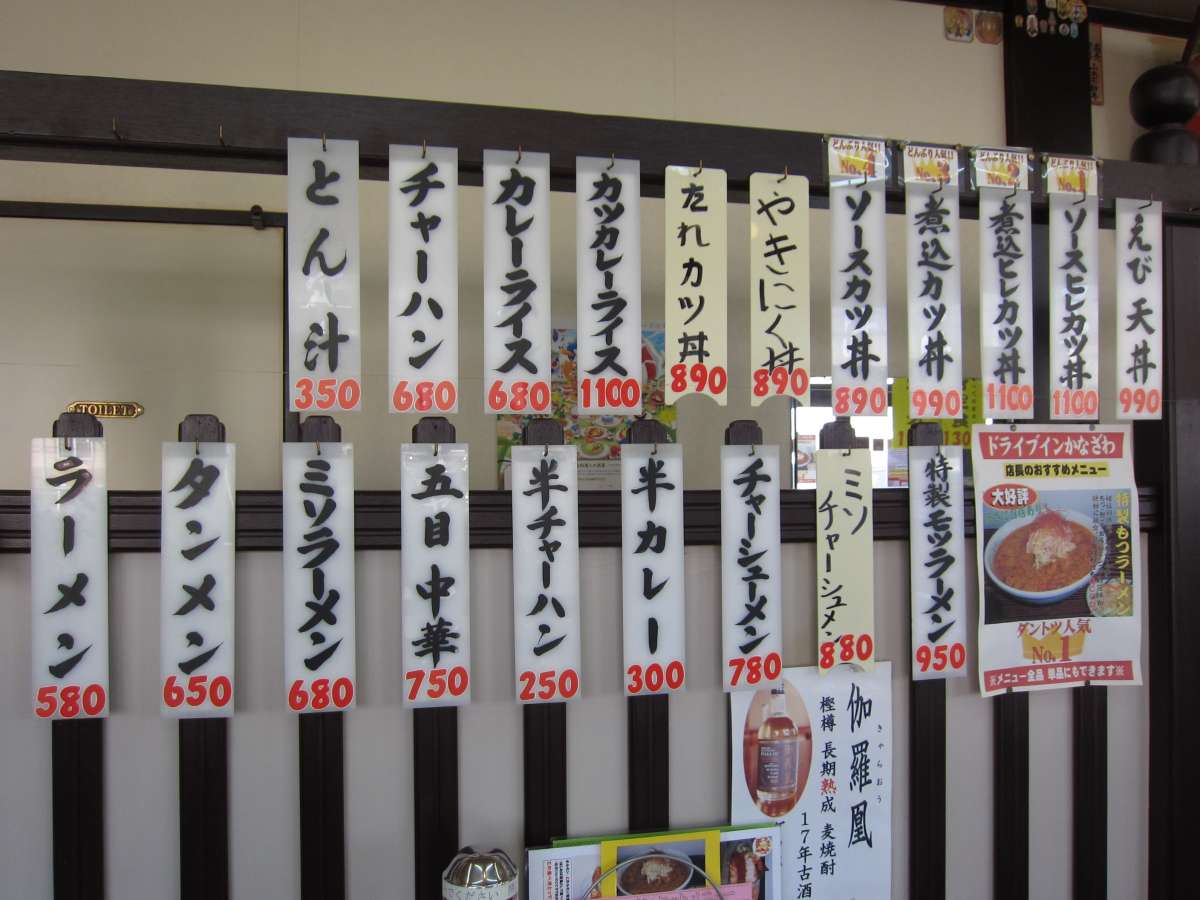 とん汁
350
チャーハン
680
カレーライス
680
カツカレーライス
1100
たれカツ丼
890
やきにく丼
890
どんぶり人気!!
No.4
ソースカツ丼
890
どんぶり人気!!
No.3
煮込カツ丼
990
どんぶり人気!!
No.2
煮込ヒレカツ丼
1100
どんぶり人気!!
No.1
ソースヒレカツ丼
1100
えび天丼
990
TOILET
ラーメン
580
タンメン
650
ミソラーメン
680
五目中華
750
半チャーハン
250
半カレー
300
チャーシューメン
780
ミソ
チャーシュメン
880
特製モツラーメン
950
ドライブインかなざわ
店長のおすすめメニュー
大好評
特製もつラーメン
ダントツ人気
No.1
※メニュー全品 単品にもできます※
伽羅凰
きゃらおう
樫樽 長期熟成 麦焼酎
17年古酒